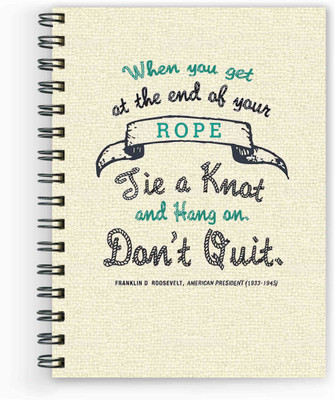 When you get
at the end of your
ROPE
Tie a Knot
and Hang on.
Don't Quit.
FRANKLIN D ROOSEVELT, AMERICAN PRESIDENT (1933-1945)